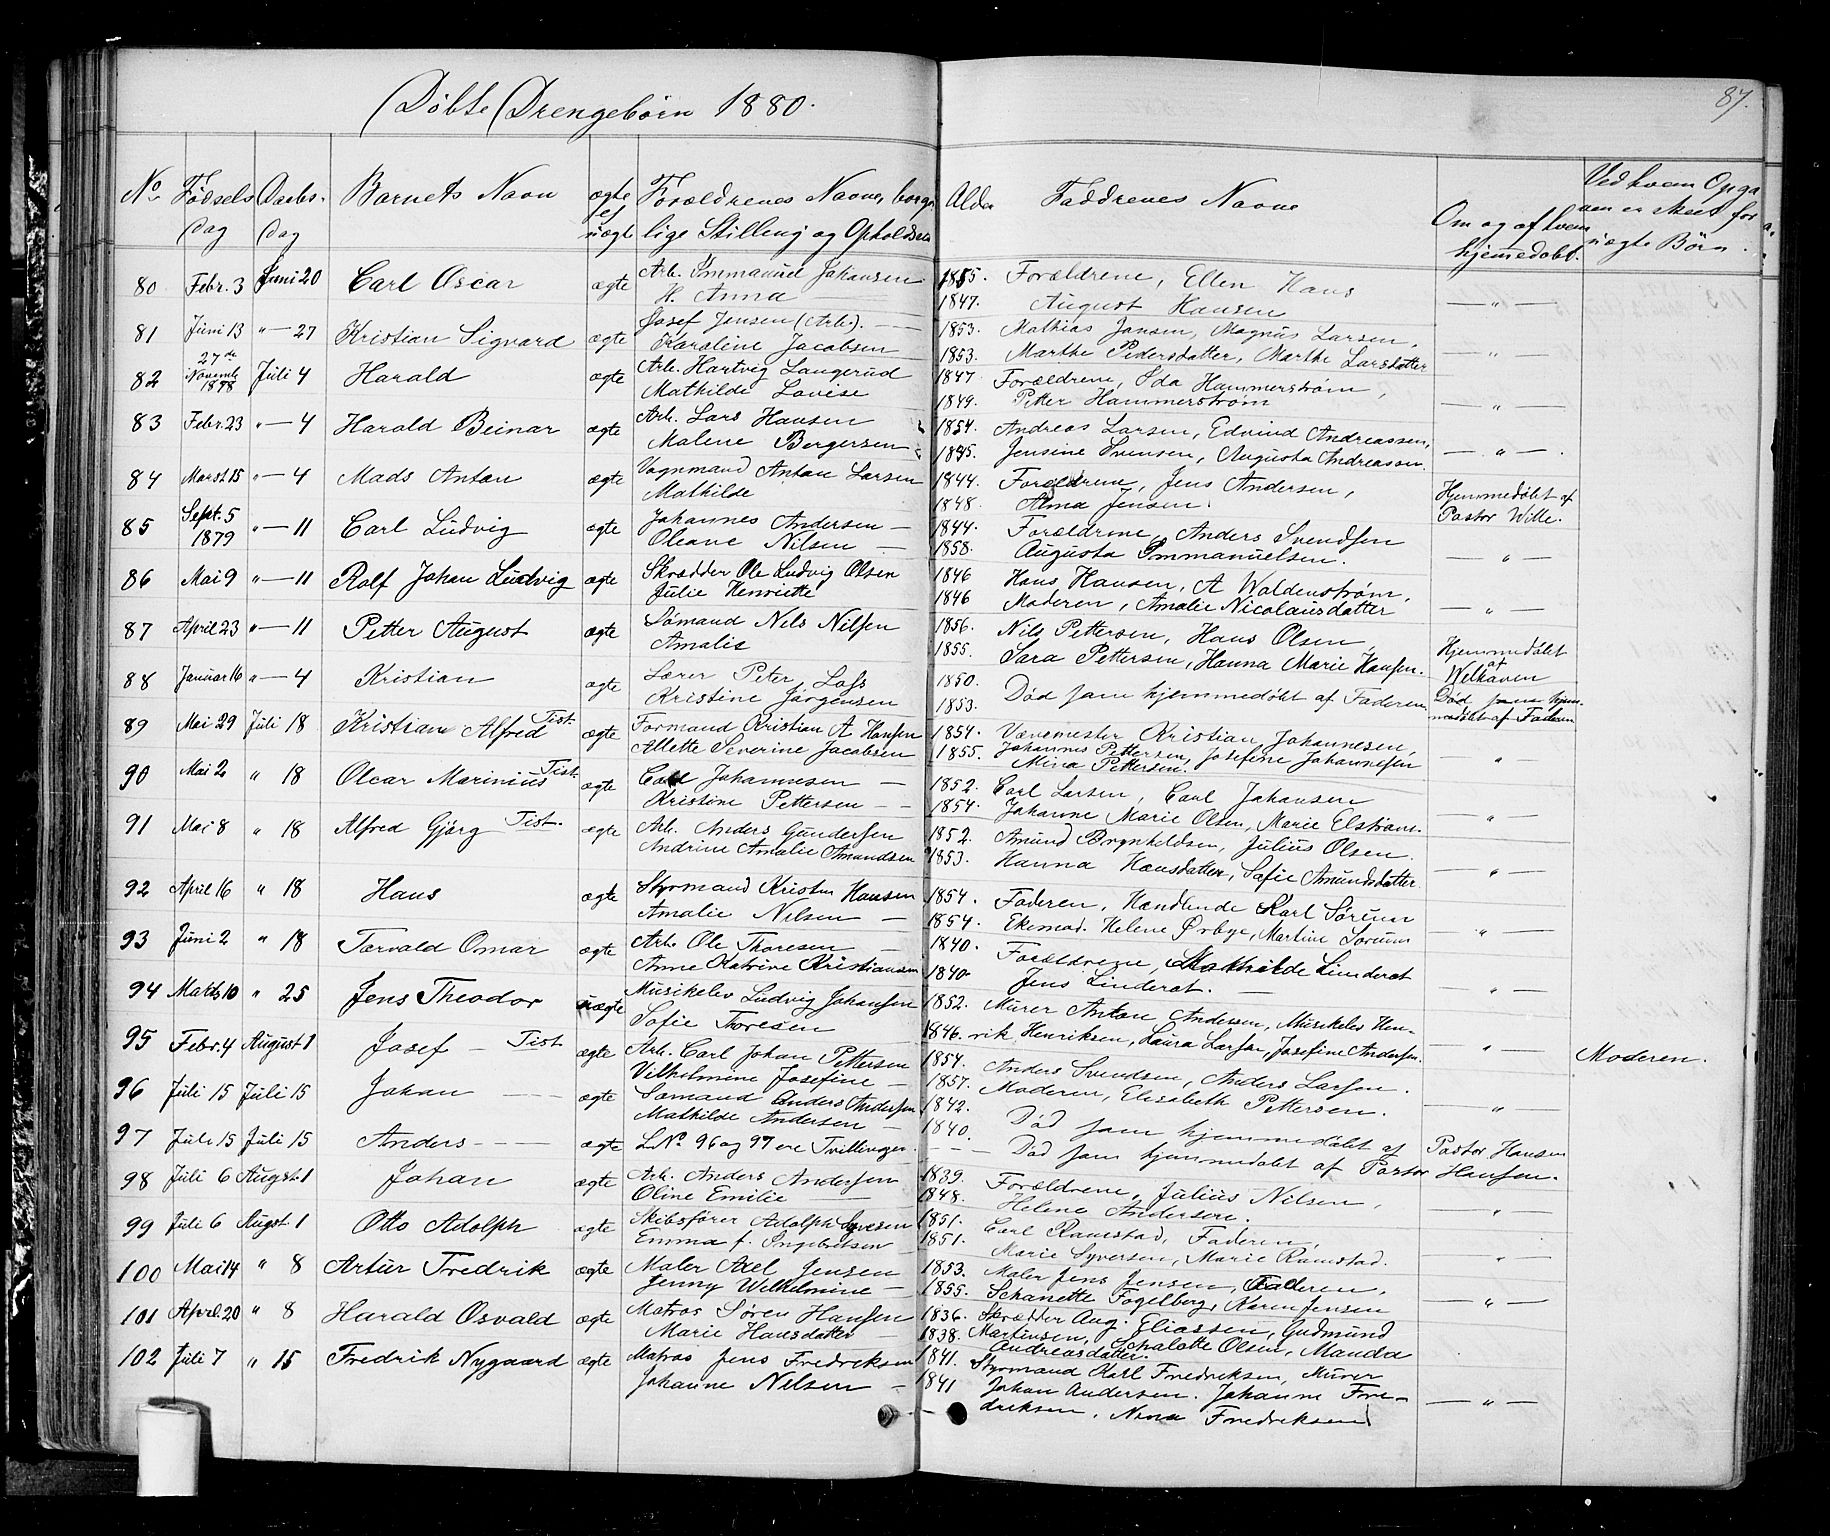 Døbte Drengebørn 1880.
87.
No Fødsels Daabs- Barnets Navn ægte Forældrenes Navne, borger Alder Faddrenes Navne Om og af hvem Ved hvem Opga
dag dag uægte lige Stilling og Opholdssted hjemmedøbt. ven er skeet for
uægte Børn.
80 Febr. 3 Juni 20 Carl Oscar ægte Arb. Immanuel Johansen 1855. Forældrene, Ellen Hans
H. Anna 1847. August Hansen — " —
81 Juni 13 " — 27 Kristian Sigvard ægte Josef Jensen (Arb.). — 1853. Mathias Jansen, Magnus Larsen,
Karoline Jacobsen 1853. Marthe Pedersdatter, Marthe Larsdatter — " —
82 27de Novemb 1878 Juli 4 Harald ægte Arb. Hartvig Langerud 1847. Forældrene, Ida Hammerstrøm,
Mathilde Lovise 1849. Petter Hammerstrøm — " —
83 Febr. 23 " — 4 Harald Beinar ægte Arb. Lars Hansen 1854. Andreas Larsen, Edvind Andreassen,
Malene Bergersen 1845. Jensine Svensen, Augusta Andreassen — " — .
84 Marst 15 " — 4 Mads Anton ægte Vognmand Anton Larsen 1844. Forældrene, Jens Andersen, Hjemmedøbt af
Mathilde 1848. Alma Jensen. Pastor Wille.
85 Sept. 5 1879 " — 11 Carl Ludvig ægte Johannes Andersen — 1844. Forældrene, Anders Svendsen
Oleane Nilsen — 1858. Augusta Immanuelsen. — " —
86 Mai 9 " — 11 Rolf Johan Ludvig ægte Skrædder Ole Ludvig Olsen 1846 Hans Hansen, A Waldenstrøm,
Julie Henriette 1846 Moderen, Amalie Nicolaisdatter — " —
87 April 23 " — 11 Petter August ægte Sømand Nils Nilsen 1856. Nils Pettersen, Hans Olsen Hjemmedøbt
Amalie 1855. Sara Pettersen, Hanna Marie Hansen. af Welhaven
88 Januar 16 " — 4 Kristian ægte Lærer Peter Lofs 1850. Død som hjemmedøbt af Faderen Død som hjem-
Kristine Jørgensen 1853. medøbt af Faderen
89 Mai 29 Juli 18 Kristian Alfred Tist. ægte Formand Kristian A Hansen 1854. Vævemester Kristian Johannesen,
Allette Severine Jacobsen 1855. Johannes Pettersen, Josefine Johannesen
Mina Pettersen. — " —
90 Mai 2 " 18 Olcar Marinius Tist. ægte Carl Johannesen — 1852. Carl Larsen, Carl Johansen
Kristine Pettersen — — 1854. Johanne Marie Olsen, Marie Elstrøm. — " —
91 Mai 8 " 18 Alfred Gjørg Tist. ægte Arb. Anders Gundersen 1852. Amund Brynhildsen, Julius Olsen.
Andrine Amalie Amundsen 1853. Hanna Hansdatter, Sofie Amundsdatter — " —
92 April 16 " 18 Hans ægte Styrmand Kristen Hansen 1854. Faderen, Handlende Karl Sørum
Amalie Nilsen — 1854. Ekemad. Helene Ørbye, Martine Sørum — " —
93 Juni 2 " 18 Torvald Omar ægte Arb. Ole Thoresen — 1840. Forældrene, Mathilde Linderot
Anne Katrine Kristiansen 1840. Jens Linderot. — — " —
94 Marts 10 " 25 Jens Theodor uægte Musikelev Ludvig Johansen 1852. Murer Anton Andersen, Musikelev Hen-
Sofie Thoresen 1846. rik Henriksen, Laura Larsen, Josefine Andersen. — " — Moderen.
95 Febr. 4 August 1 Josef — Tist ægte Arb. Carl Johan Pettersen 1854. Anders Svendsen, Anders Larsen.
Vilhelmine Josefine — 1857. Moderen, Elisabeth Pettersen. — " —
96 Juli 15 Juli 15 Johan — ægte Sømand Anders Andersen 1842. Død som hjemmedøbt af Pastor Hansen
Mathilde Andersen — 1840.
97 Juli 15 Juli 15 Anders — — — ægte LNo 96 og 97 ere Tvillinger. — — — Død som hjemmedøbt af Pastor Hansen.
98 Juli 6 Augst. 1 Johan ægte Arb. Anders Andersen 1839. Forældrene, Julius Nilsen,
Oline Emilie — 1848. Helene Andersen. — " —
99 Juli 6 Augst. 1 Otto Adolph ægte Skibsfører Adolph Syvesen 1851. Carl Ramstad, Faderen,
Emma f. Ingebretsen 1851. Marie Syversen, Marie Ramstad. "
100 Mai 14 " 8 Artur Fredrik ægte Maler Axel Jensen 1853. Maler Jens Jensen, Faderen,
Jenny Wilhelmine — 1855. Schanette Fogelberg, Karen Jensen — " —
101 April 20 " 8 Harald Osvald ægte Matros Søren Hansen 1836. Skrædder Aug. Eliassen, Gudmund
Marie Hansdatter — 1838. Martinsen, Schalotte Olsen, Manda
Andreasdatter.
102 Juli 7 " 15 Fredrik Nygaard ægte Matros Jens Fredriksen 1841. Styrmand Karl Fredriksen, Murer
Johanne Nilsen — 1841 Johan Andersen. Johanne Fre-
driksen, Nina Fredriksen — " —